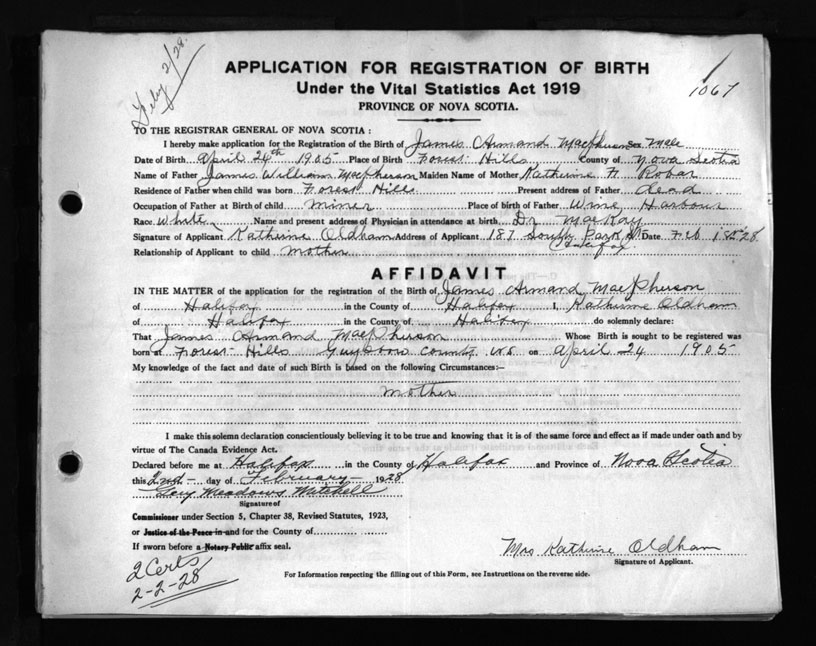 Feby 2/28.
1067
APPLICATION FOR REGISTRATION OF BIRTH
Under the Vital Statistics Act 1919
PROVINCE OF NOVA SCOTIA.
TO THE REGISTRAR GENERAL OF NOVA SCOTIA :
I hereby make application for the Registration of the Birth of James Armand Macpherson Sex Male
Date of Birth April 24th 1905 Place of Birth Forest Hills County of Nova Scotia
Name of Father James William Macpherson Maiden Name of Mother Katherine H. Robar
Residence of Father when child was born Forest Hills Present address of Father dead
Occupation of Father at Birth of child miner Place of birth of Father Wine Harbour
Race White Name and present address of Physician in attendance at birth Dr MacKay
Signature of Applicant Katherine Oldham Address of Applicant 187 South Park St Halifax. Date Feb 1st 28
Relationship of Applicant to child mother
AFFIDAVIT
IN THE MATTER of the application for the registration of the Birth of James Armand Macpherson
of Halifax in the County of Halifax I, Katherine Oldham
of Halifax in the County of Halifax do solemnly declare:
That James Armand Macpherson Whose Birth is sought to be registered was
born at Forest Hills Guysboro County N.S on April 24 1905
My knowledge of the fact and date of such Birth is based on the following Circumstances:—
mother
I make this solemn declaration conscientiously believing it to be true and knowing that it is of the same force and effect as if made under oath and by
virtue of The Canada Evidence Act.
Declared before me at Halifax in the County of Halifax and Province of Nova Scotia
this 2nd day of February 1928
Meadows Mitchell
Signature of
Commissioner under Section 5, Chapter 38, Revised Statutes, 1923,
or Justice of the Peace in and for the County of
If sworn before a Notary Public affix seal.
Mrs Katherine Oldham
Signature of Applicant.
2 Certs
2-2-28
For Information respecting the filling out of this Form, see Instructions on the reverse side.